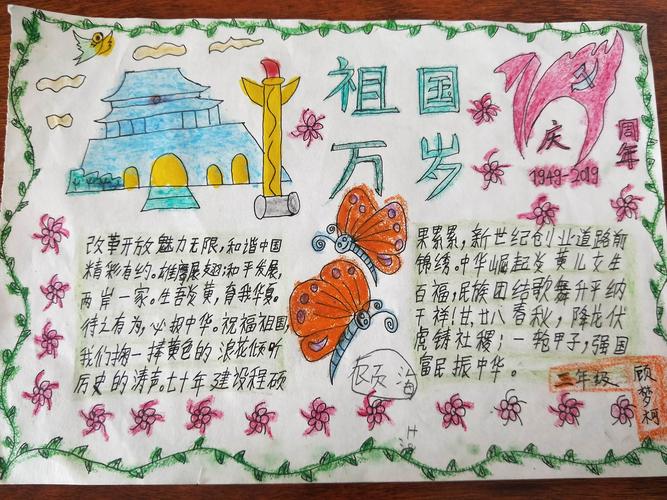 祖国
万岁
庆
周年
1949-2019
改革开放魅力无限,和谐中国
精彩有约。雄鹰展翅和平发展,
两岸一家。生吾炎黄,育我华夏。
待之有为,必报中华。祝福祖国,
我们掬一捧黄色的浪花倾听
历史的涛声。七十年建设程硕
果累累,新世纪创业道路前
锦绣。中华崛起炎黄儿女生
百福,民族团结歌舞升平纳
千祥!廿,廿八春秋,降龙伏
虎铸社稷;一轮甲子,强国
富民振中华。
海
三年级
顾梦